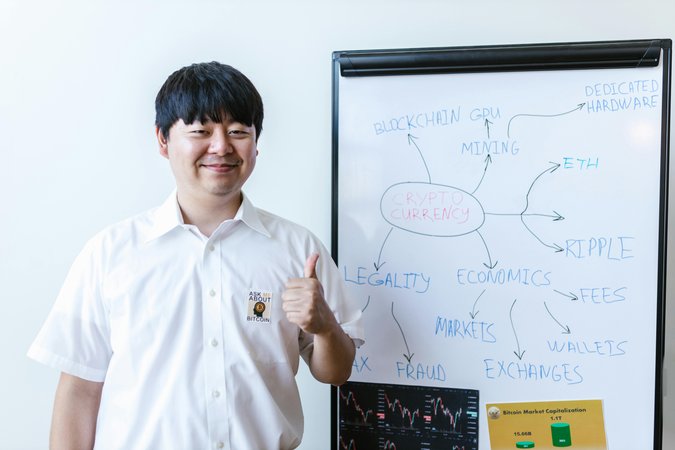 DEDICATED
HARDWARE
BLOCKCHAIN
GPU
MINING
ETH
CRYPTO
CURRENCY
RIPPLE
LEGALITY
ECONOMICS
FEES
MARKETS
WALLETS
FRAUD
EXCHANGES
ASK ME
ABOUT
BITCOIN
Bitcoin Market Capitalization
1.1T
15.66B